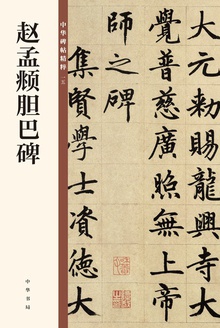 赵孟頫胆巴碑
中华书局
中华碑帖精粹 一五
大元勅賜龍興寺大
覺普慈廣照無上帝
師之碑
集賢學士資德大